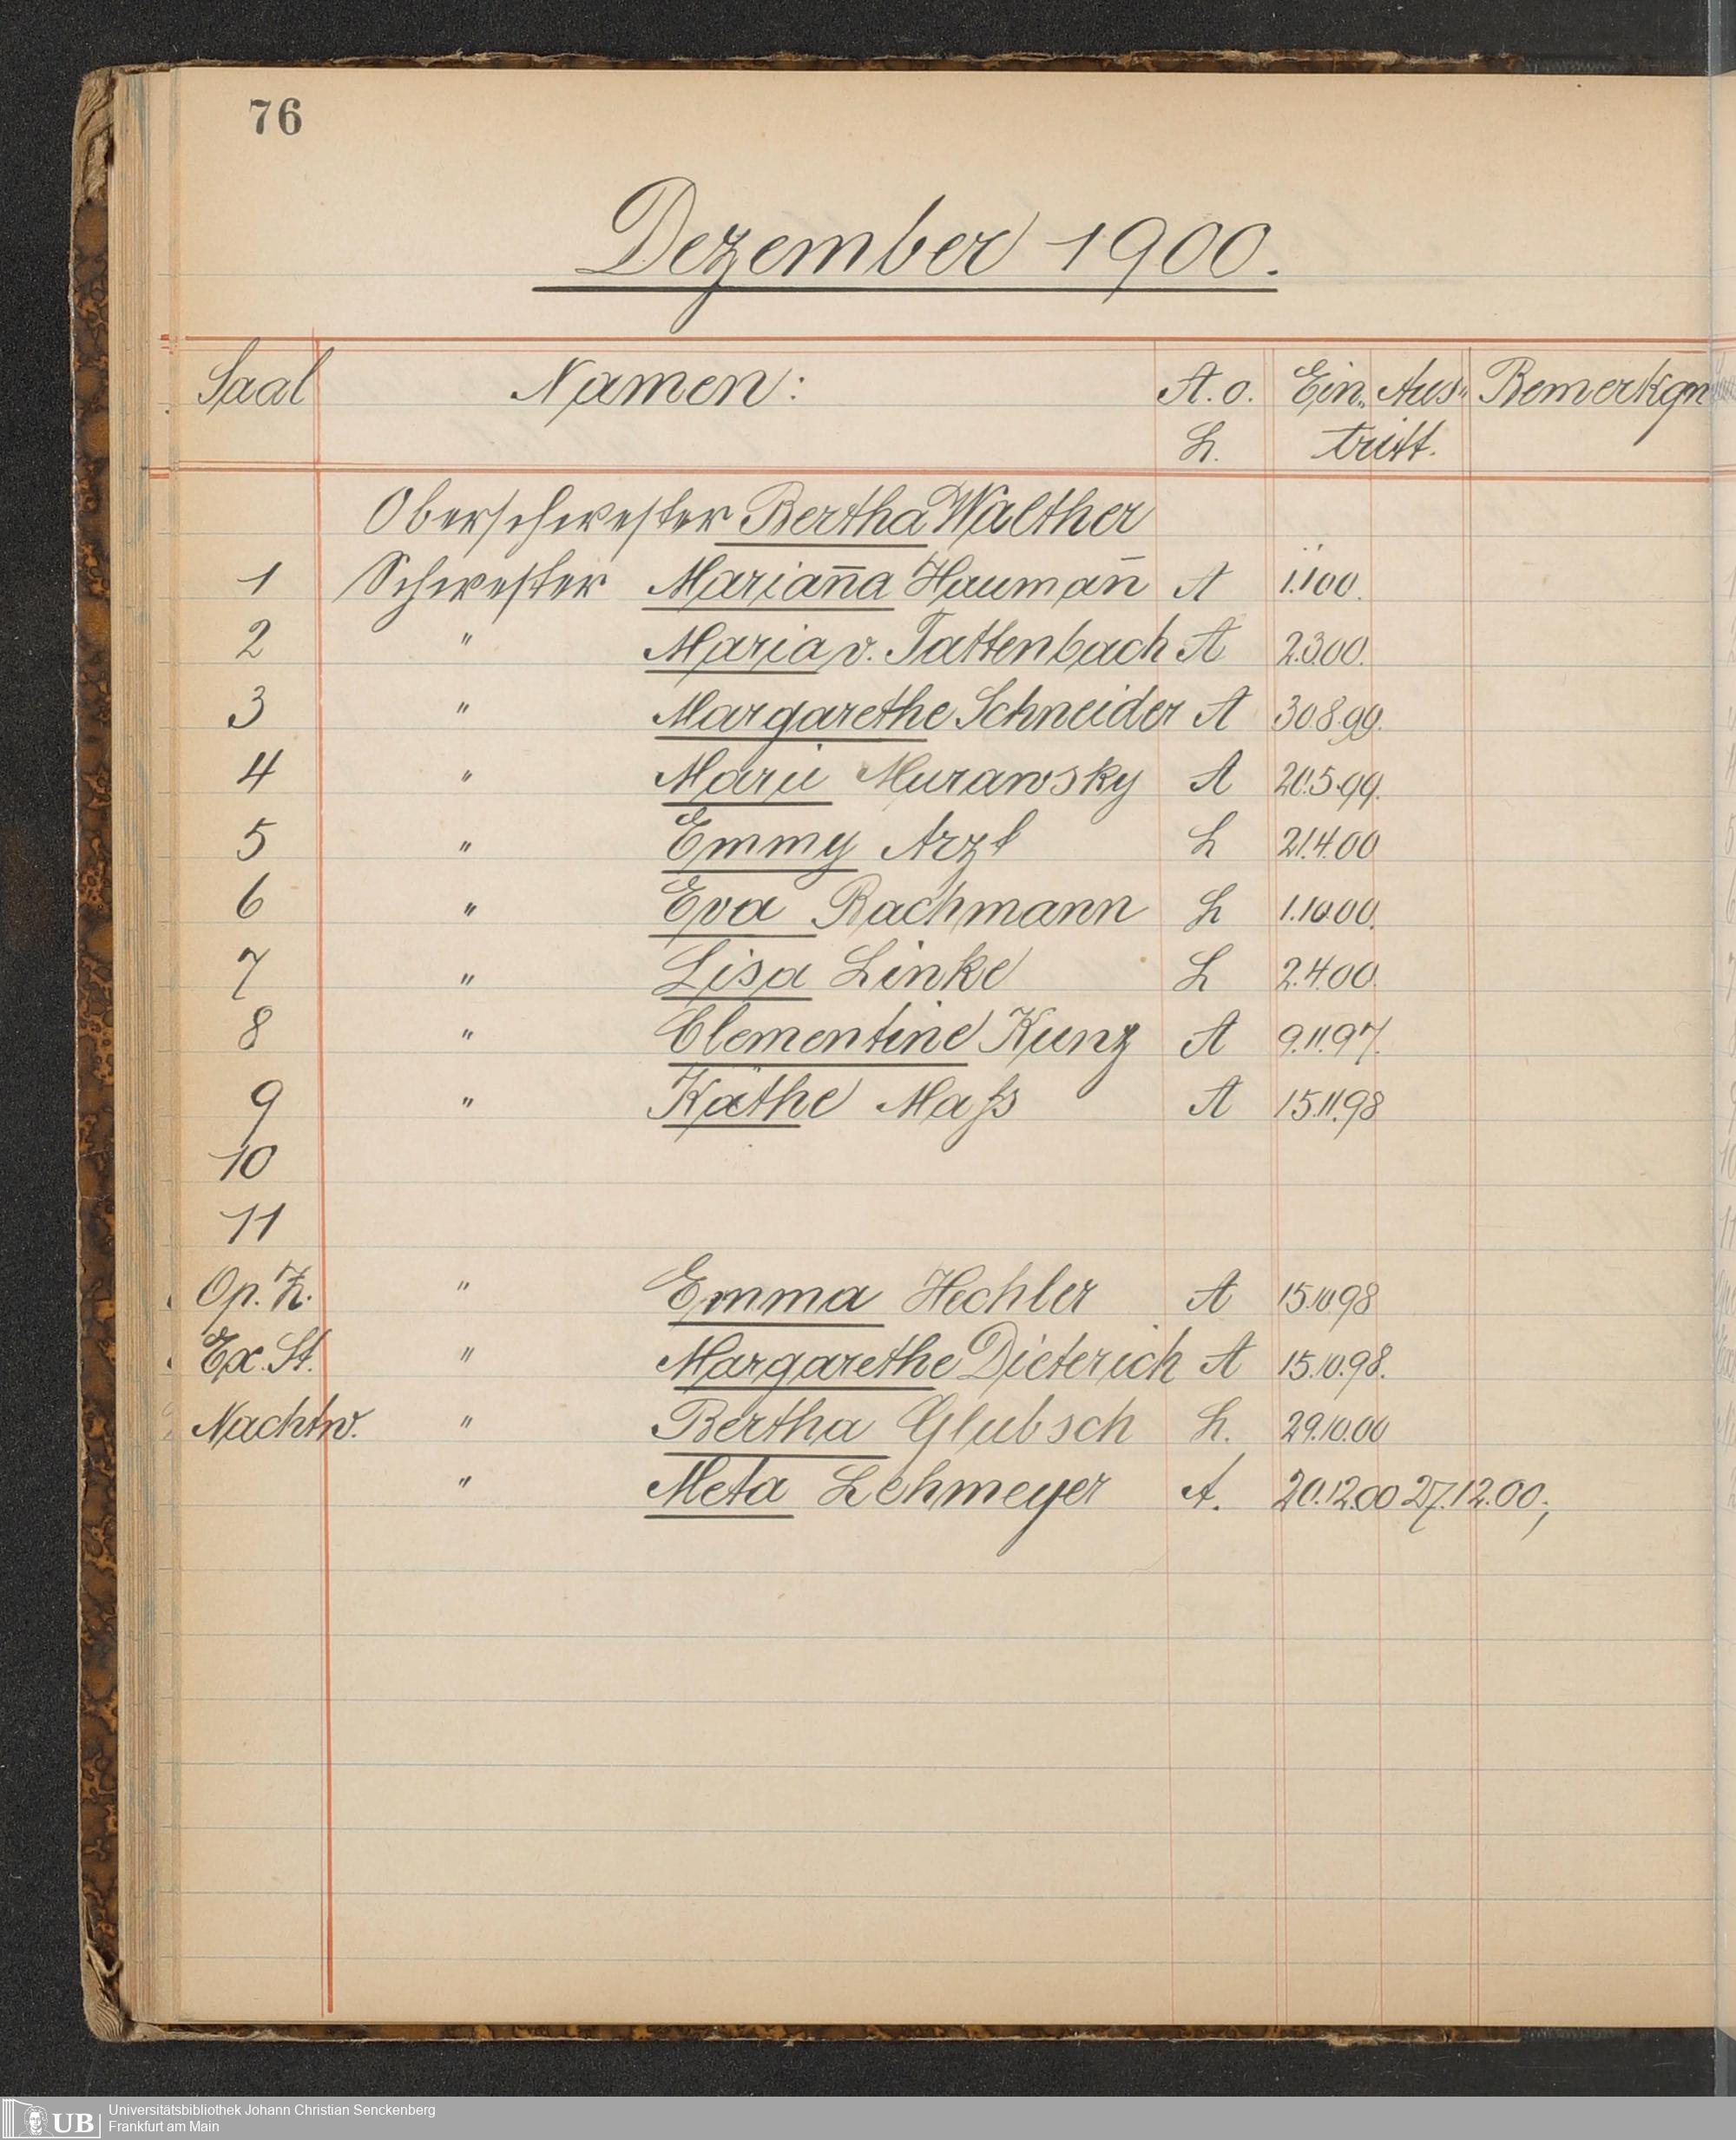 76
Dezember 1900.
Saal Namen: A. o. Ein„ Aus„ Bemerkgn
L. tritt.
Oberschwester Bertha Walther
1 Schwester Mariana̅ Hauman̅ A 1.1 00.
2 " Maria v. Tattenbach A 2.3.00.
3 " Margarethe Schneider A 30.8.99.
4 " Marie Murawsky A 20.5.99.
5 " Emmy Arzt L 21.4.00
6 " Eva Bachmann L 1.10.00.
7 " Lisa Linke L 2.4.00.
8 " Clementine Kunz A 9.11.97.
9 " Käthe Maß A 15.11.98
10
11
Op. Z. " Emma Hechler A 15.10.98
Ex. St. " Margarethe Dieterich A 15.10.98.
Nachtw. " Bertha Glubsch L. 29.10.00
" Meta Lehmeyer A. 20.12.00 27.12.00;
UB Universitätsbibliothek Johann Christian Senckenberg
Frankfurt am Main